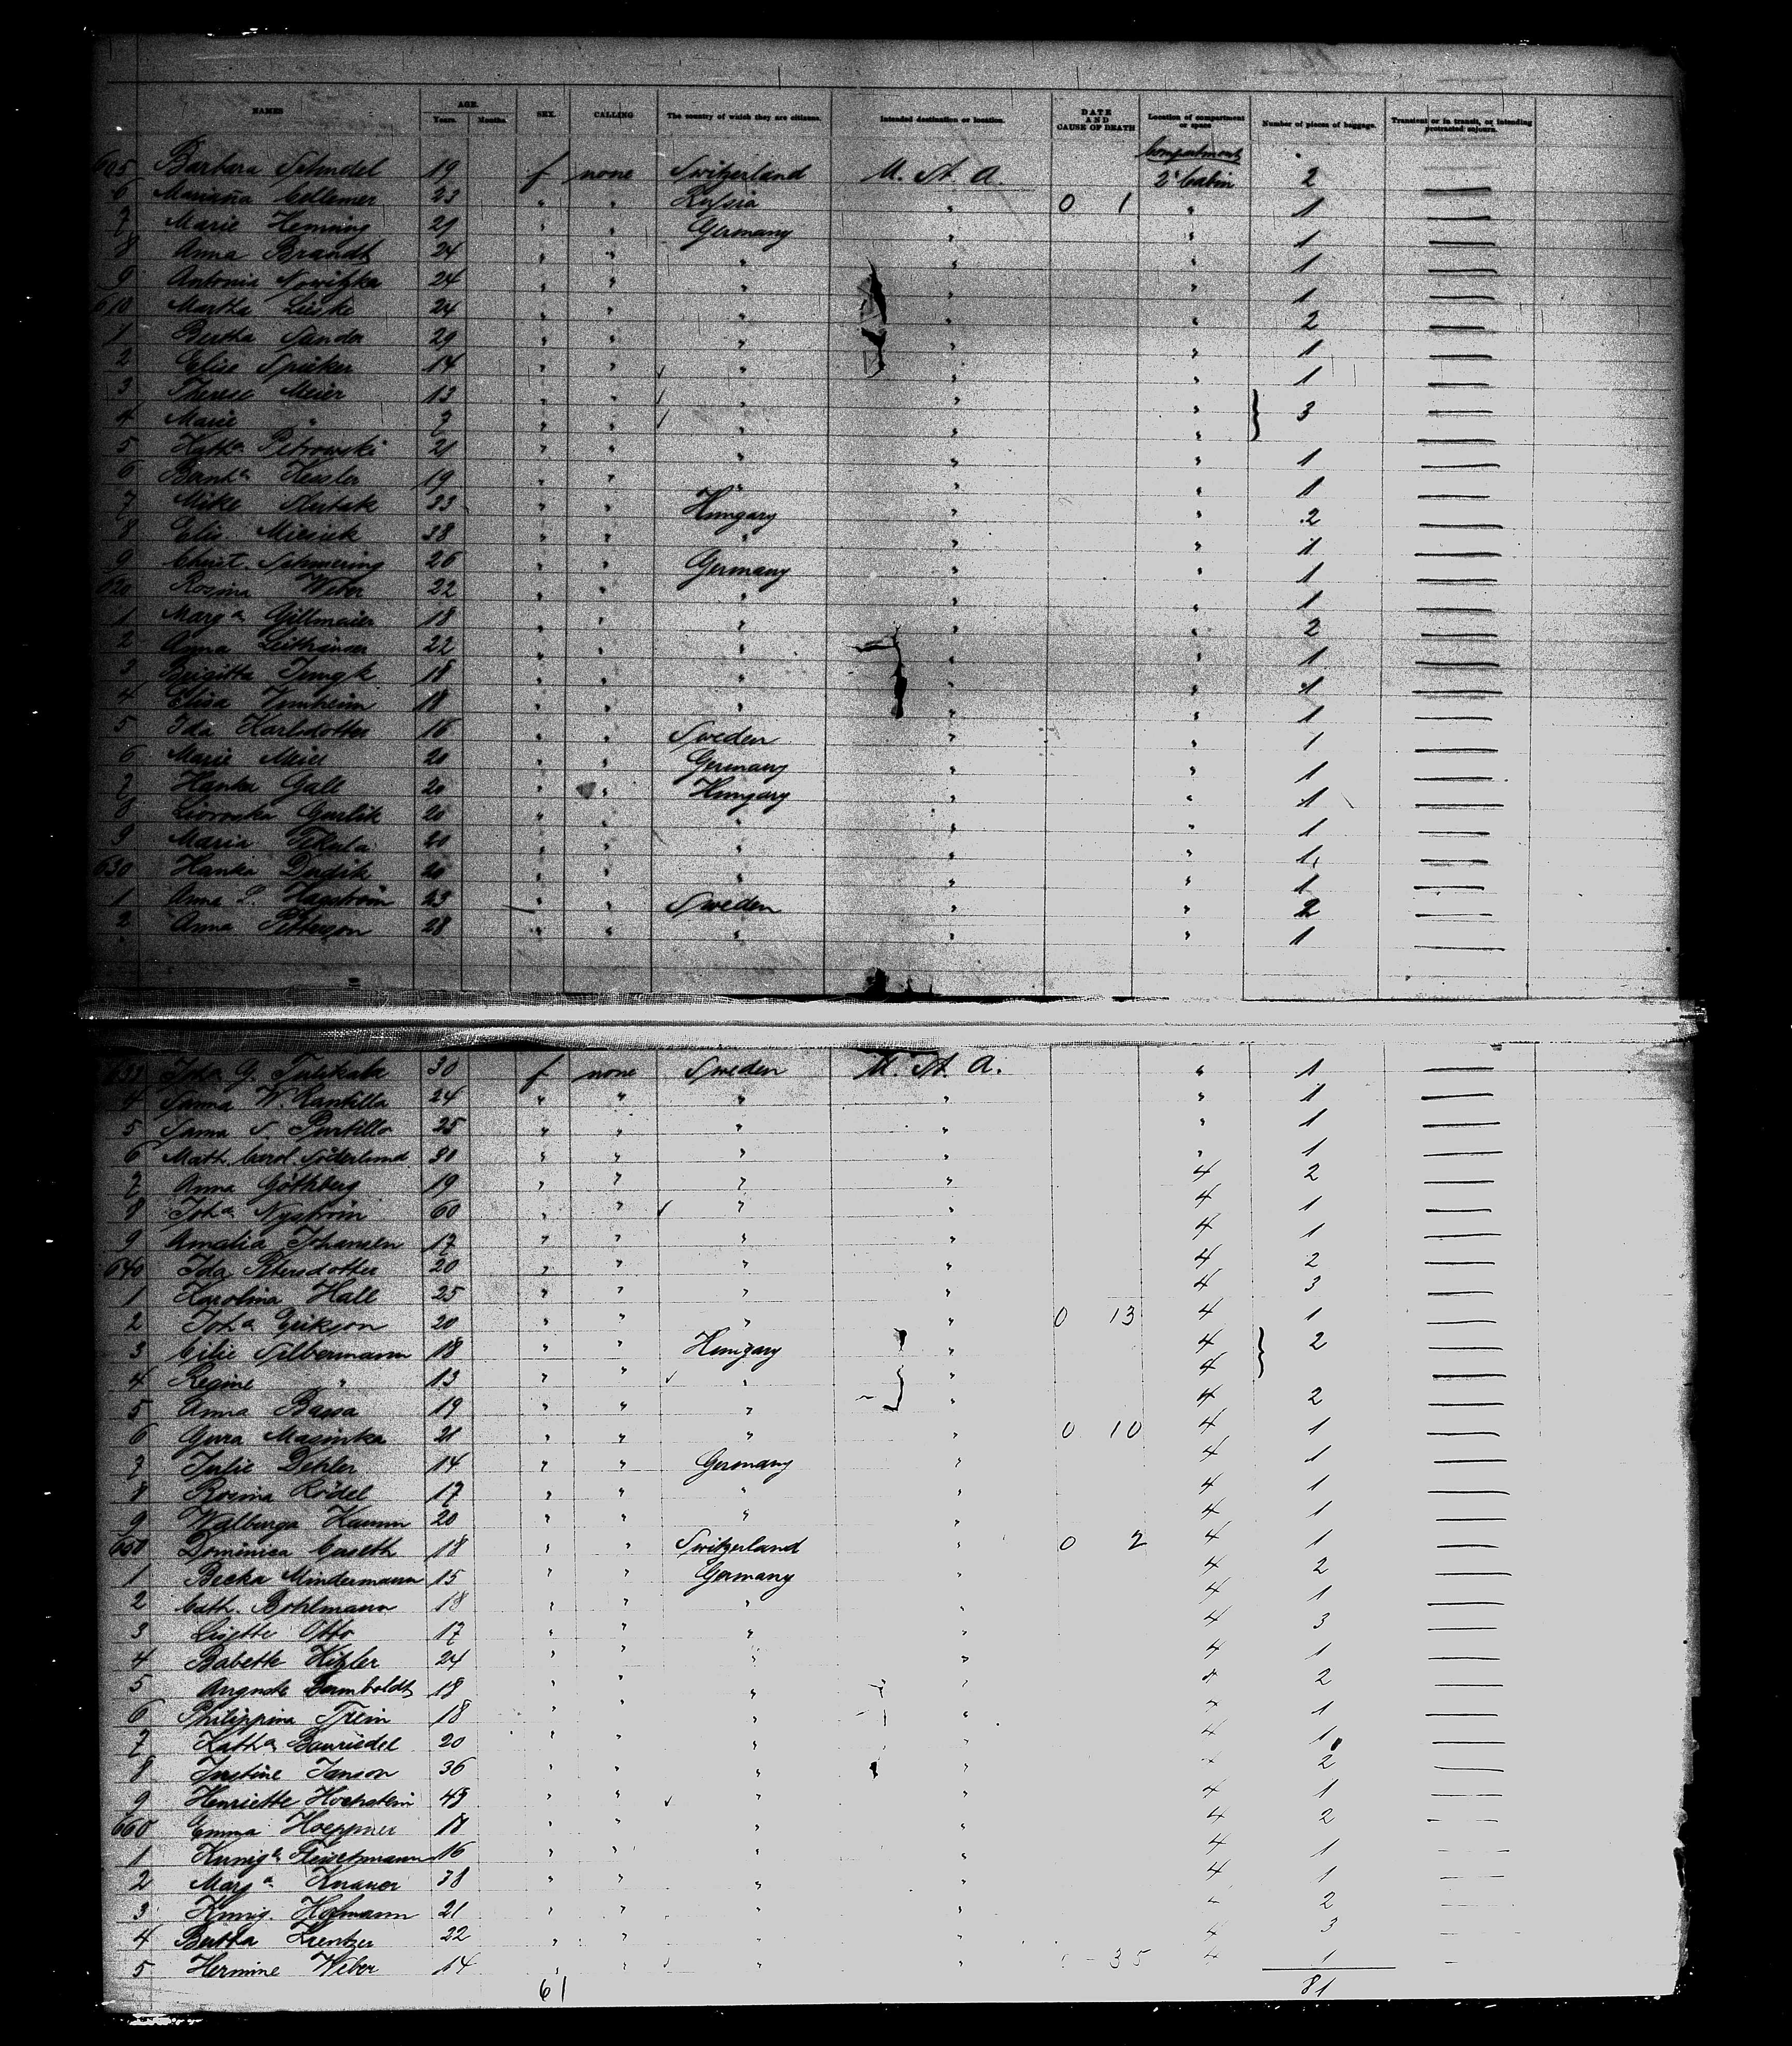 NAMES AGE. Years. Months. SEX. CALLING The country of which they are citizens. Intended destination or location. DATE AND CAUSE OF DEATH Location of compartment or space Number of pieces of baggage. Transient or in transit, or intending protracted sojourn.
Compartment
605 Barbara 19 f none Switzerland U. St. A. 2d Cabin 2 —
6 Collemer 23 " " Russia " 0 1 " 1 —
7 Marie Henning 29 " " Germany " " 1 —
8 Anna Brandt 24 " " " " " 1 —
9 Antonie Nowitzka 24 " " " " " 1 —
610 Martha Lieske 24 " " " " " 2 —
1 Bertha Sander 29 " " " " " 1 —
2 Elise Spieker 14 " " " " " 1 —
3 Therese Meier 13 " " " " " 3 —
4 Marie " 7 " " " " " —
5 Katha Petrowski 21 " " " " " 1 —
6 Kessler 19 " " " " " 1 —
7 Mike 33 " " Hungary " " 2 —
8 Elis. 38 " " " " " 1 —
9 Christ. Schmering 26 " " Germany " " 1 —
620 Rosina Weber 22 " " " " " 1 —
1 Marga Gillmaier 18 " " " " " 2 —
2 Anna 22 " " " " " 1 —
3 Brigitta Jungk 18 " " " " " 1 —
4 Elisa 18 " " " " " 1 —
5 Ida Karlsdotter 16 " " Sweden " " 1 —
6 Marie Meier 20 " " Germany " " 1 —
7 Hanka Gall 20 " " Hungary " " 1 —
8 Garlik 20 " " " " " 1 —
9 Maria 20 " " " " " 1 —
630 Hanka Dudik 20 " " " " " 1 —
1 Anna L. Hagström 23 " " Sweden " " 2 —
2 Anna Petterson 28 " " " " " 1 —
633 Ida G. 30 f none Sweden U. St. A. " 1 —
4 Sanna W. Rantilla 24 " " " " " 1 —
5 Sanna S. 25 " " " " " 1 —
6 Math. Carol. Söderlund 30 " " " " " 1 —
7 Anna Göthberg 19 " " " " 4 2 —
8 Joha Nyström 60 " " " " 4 1 —
9 Amalia Johansen 17 " " " " 4 1 —
640 Ida Petersdotter 20 " " " " 4 2 —
1 Karolina Hall 25 " " " " 4 3 —
2 Joha Erikson 20 " " " " 0 13 4 1 —
3 Cilie Silbermann 18 " " Hungary " 4 2 —
4 Regine " 13 " " " " 4 —
5 Anna Bassa 19 " " " " 4 2 —
6 Gura Masinka 21 " " " " 0 10 4 1 —
7 Julie Dehler 14 " " Germany " 4 1 —
8 Rosina Rödel 17 " " " " 4 1 —
9 Walburga Kamm 20 " " " " 4 1 —
650 Dominica Caseth 18 " " Switzerland " 0 2 4 1 —
1 Becka Mindermann 15 " " Germany " 4 2 —
2 Cath. Bohlmann 18 " " " " 4 1 —
3 Lisette Otto 17 " " " " 4 3 —
4 Babette Kitzler 24 " " " " 4 1 —
5 Auguste Gumboldt 18 " " " " 4 2 —
6 Philippina Trein 18 " " " " 4 1 —
7 Katha Bauriedel 20 " " " " 4 1 —
8 Justine Janson 36 " " " " 4 2 —
9 Henriette Hochstein 49 " " " " 4 1 —
660 Emma Hoeppner 18 " " " " 4 2 —
1 Kuniga Fleischmann 16 " " " " 4 1 —
2 Marga Knauer 38 " " " " 4 1 —
3 Kunig. Hofmann 21 " " " " 4 2 —
4 Bertha Krentzer 22 " " " " 4 3 —
5 Hermine Weber 14 " " " " 0 - 35 4 1 —
61 81